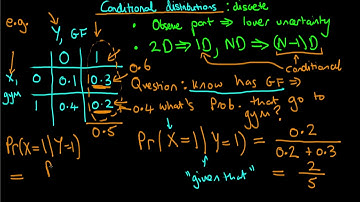 Conditional distributions : discrete
e.g.
• Observe part ⇒ lower uncertainty
• 2D ⇒ 1D, ND ⇒ (N-1)D
conditional
Y, GF
0 1
X, gym
0 0.1 0.3 0.6
1 0.4 0.2 0.4
0.5
Question: know has GF ⇒
what's prob. that go to
gym?
Pr(X=1|Y=1) = 0.2
0.2 + 0.3
"given that"
= 2
5
Pr(X=1|Y=1)
=